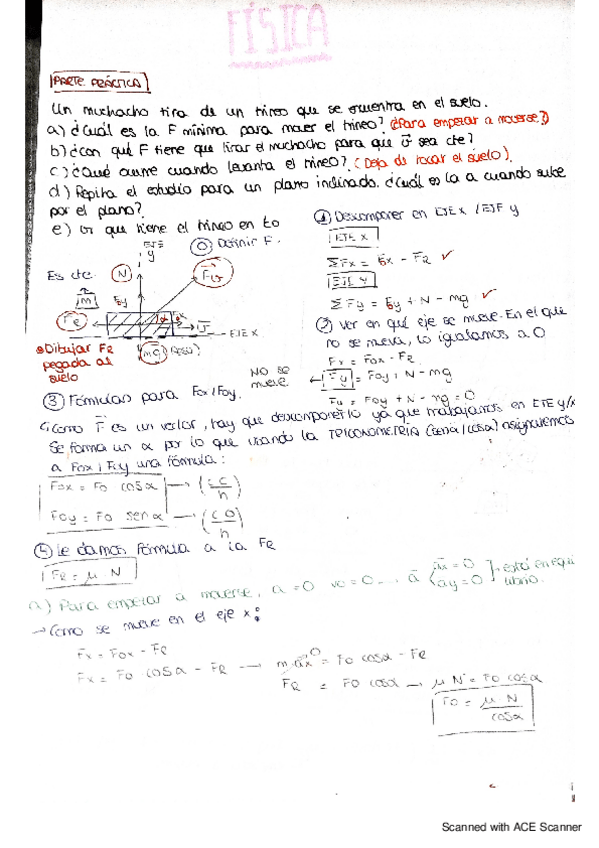 FÍSICA
PARTE PRÁCTICA
Un muchacho tira de un trineo que se encuentra en el suelo.
a) ¿cuál es la F mínima para mover el trineo? (¿Para empezar a moverse?)
b) ¿con qué F tiene que tirar el muchacho para que v sea cte?
c) ¿Qué ocurre cuando levanta el trineo? (Deja de tocar el suelo).
d) Repita el estudio para un plano inclinado. ¿Cuál es la a cuando sube
por el plano?
e) v que tiene el trineo en to
EJE
y
⓪ Definir F.
Es cte.
N
m
FR
α
EJE X
mg (Peso)
Dibujar FR
pegada al
suelo
① Descomponer en EJE x / EJE y
EJE X
ΣFx = Fox - FR ✓
EJE Y
ΣFy = Foy + N - mg ✓
② Ver en qué eje se mueve. En el que
no se mueva, lo igualamos a 0
Fx = Fox - FR
NO se
mueve
Fy = Foy + N - mg
Fy = Foy + N - mg = 0
③ Fórmulas para Fox/Foy.
Como F es un vector, hay que descomponerlo ya que trabajamos en EJE y/x
Se forma un α por lo que usando la TRIGONOMETRÍA (senα/cosα) asignaremos
a Fox/Foy una fórmula:
Fox = Fo cosα → (CC/h)
Foy = Fo senα → (CO/h)
④ Le damos fórmula a la FR
FR = μ N
a) Para empezar a moverse, a = 0 vo = 0... a { ax = 0 ay = 0 } está en equilibrio.
→ Como se mueve en el eje x:
Fx = Fox - FR
Fx = Fo cosα - FR → m ax = Fo cosα - FR
FR = Fo cosα → μ N = Fo cosα
Fo = μ N / cosα
Scanned with ACE Scanner